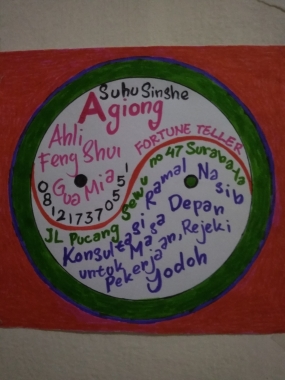 Suhu Sinshe
Agiong
Ahli
Feng Shui
Gua Mia
FORTUNE TELLER
081217370551
JL Pucang Sewu no 47 Surabaya
Ramal Nasib
Konsultasi
untuk Masa Depan
Pekerjaan, Rejeki
Jodoh